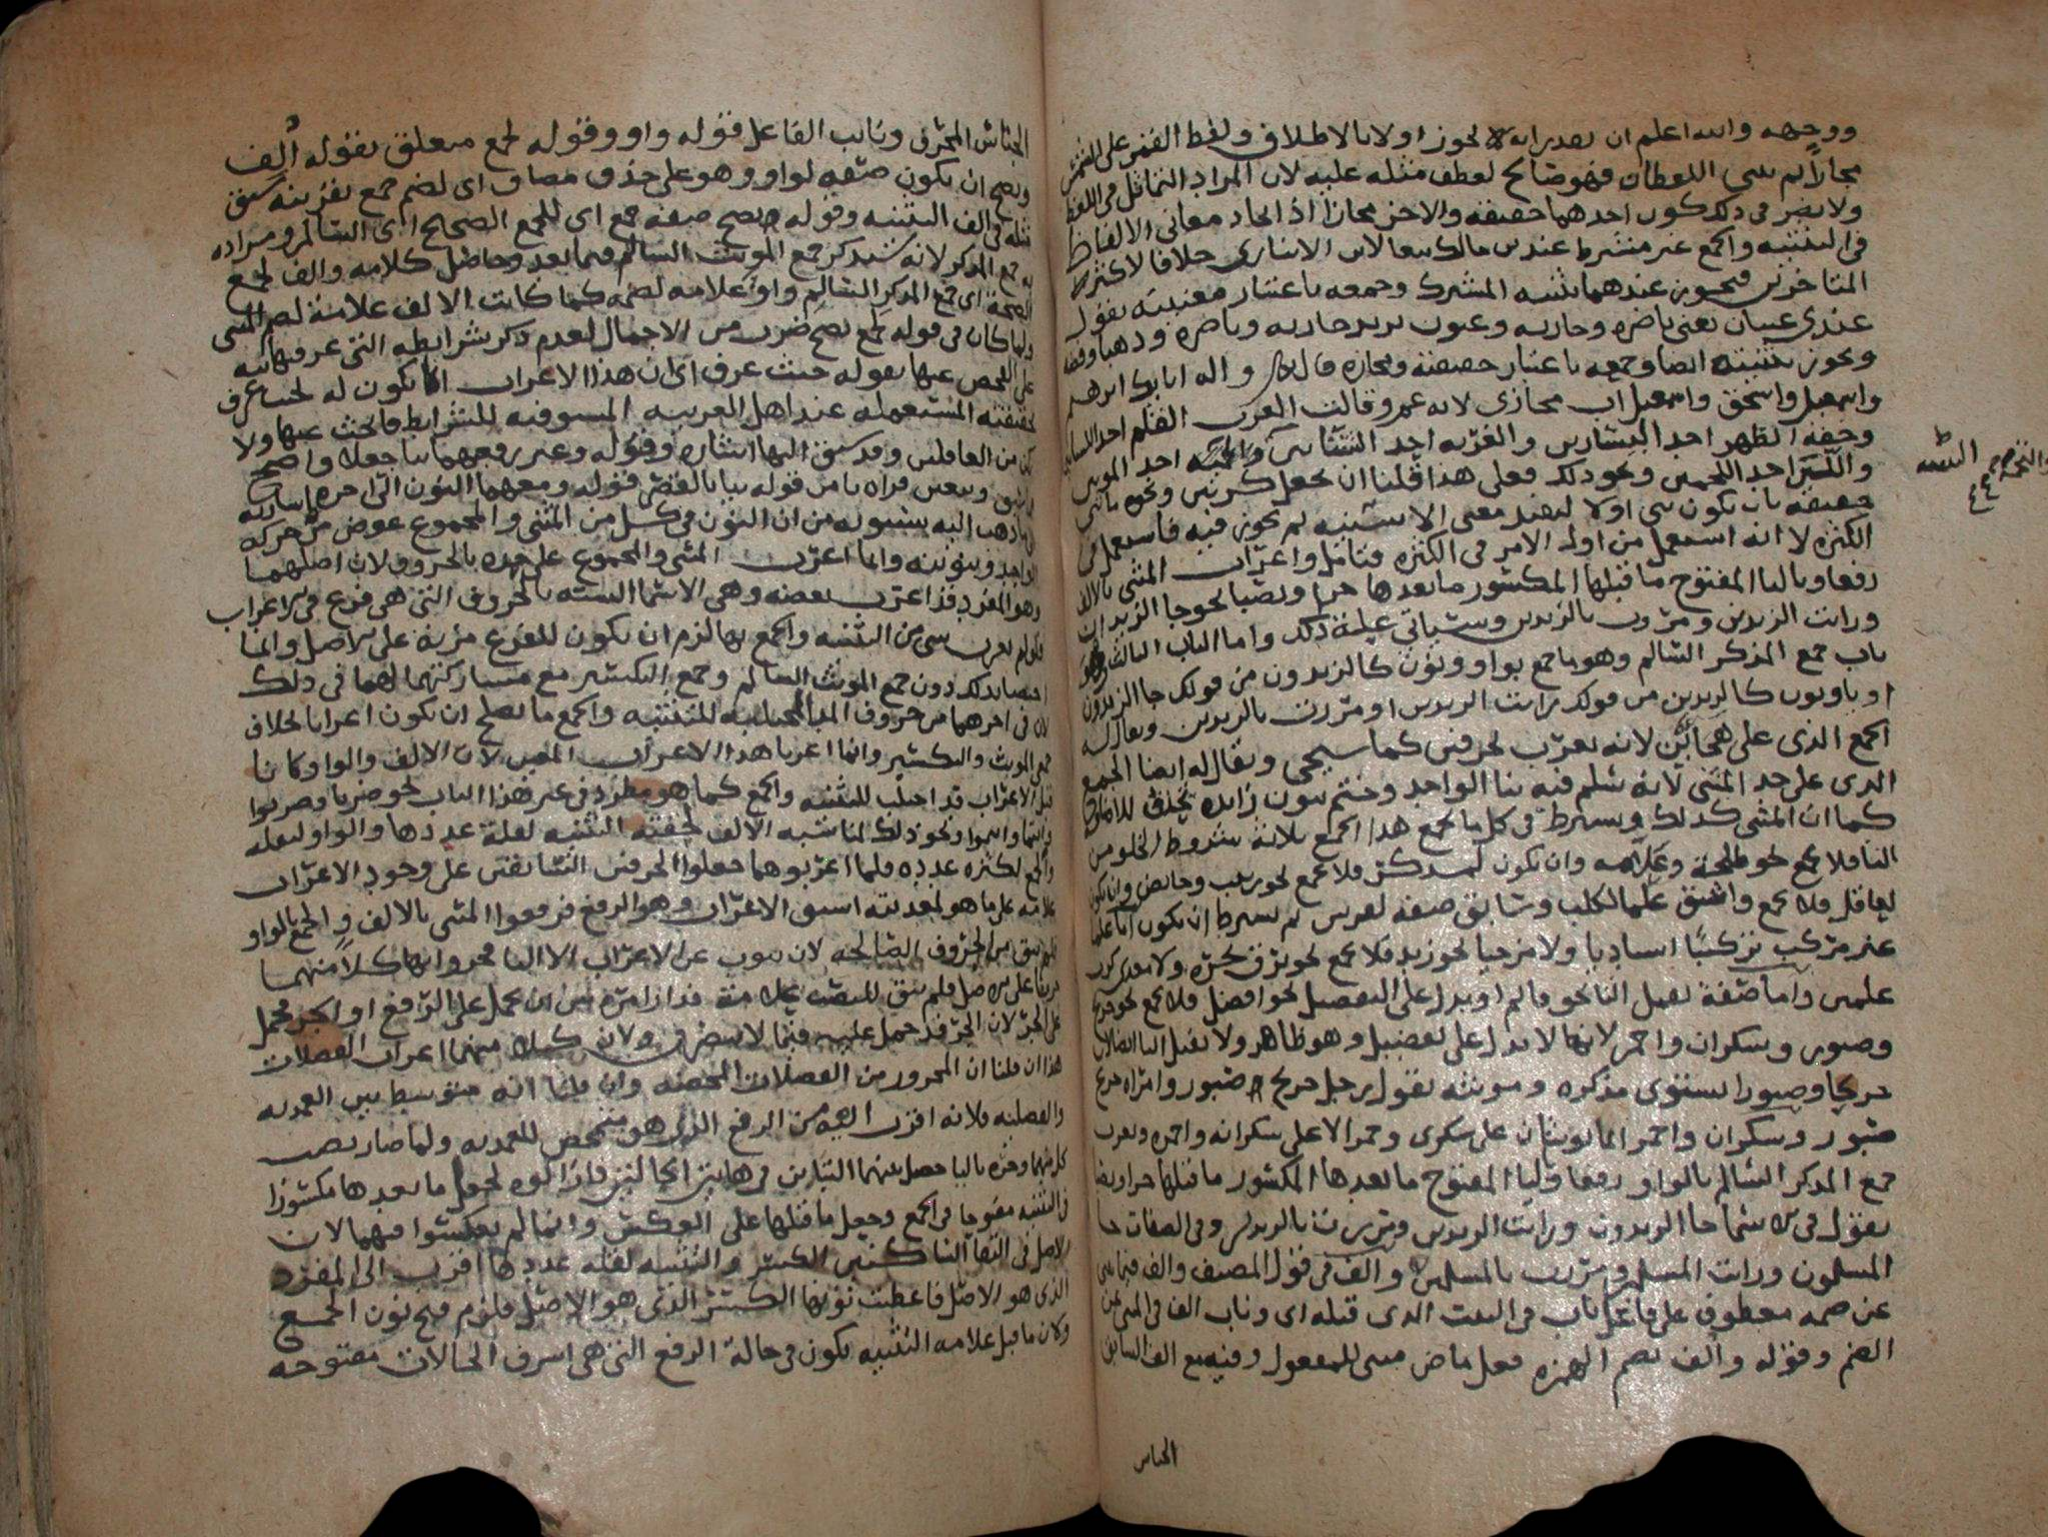 ووجهه والله اعلم ان تعديرانه لا يجوز اولا بالاطلاق ولفظ القمر على الشمس
مجازا لم سى اللفظان فهو صالح لعطف مثله عليه لان المراد التماثل في اللفظ
ولا يضر في ذلك كون احدهما حقيقة والاخر مجازا اذ اتحاد معاني الالفاظ
في التثنيه والجمع غير مشترط عند بن مالك تبعا لابن الانباري خلافا لاكثر
المتاخرين فيجوز عندهما تثنيه المشترك وجمعه باعتبار معنييه تقول
عندي عينان يعني باصره وجاريه وعيون يريد جاريه وباصره وذهبا وفضه
ويجوز تثنيته ايضا وجمعه باعتبار حقيقته ومجازه قال واله ابايك ابرهيم
واسمعيل واسحق واسمعيل اب مجازي لانه عم وقالت العرب القلم احد اللسانين
وخفة الظهر احد اليسارين والغربه احد السبائين احد الموتين
واللبن احد اللحمين ونحو ذلك فعلى هذا قلنا ان يجعل كرتين ونحوه
حقيقه بان يكون اولا لتفيد معنى الاثنينيه ثم يجوز فيه فاستعمل في
الكثره لا انه استعمل من اول الامر في الكثره فتامل واعراب المثنى بالالف
رفعا وباليا المفتوح ما قبلها المكسور ما بعدها جرا ونصبا نحو جا الزيدان
ورايت الزيدين ومررت بالزيدين وسياتي علة ذلك واما الباب الثالث وهو
باب جمع المذكر السالم وهو ما جمع بواو ونون كالزيدون من قولك جا الزيدون
او يا ونون كالزيدين من قولك رايت الزيدين او مررت بالزيدين ويقال له
الجمع الذي على هجائين لانه يعرب بحرفين كما سيجي ويقال له ايضا الجمع
الذي على حد المثنى لانه سلم فيه بنا الواحد وختم بنون زايده تحذف للاضافه
كما ان المثنى كذلك ويشترط في كل ما يجمع هذا الجمع ثلاثة شروط الخلو من
التا فلا يجمع نحو طلحة وعلامه وان يكون لمذكر فلا يجمع نحو زينب وحايض وان يكون
لعاقل فلا يجمع واشق علما لكلب وسابق صفة لفرس ثم يشترط ان يكون اما علما
غير مركب تركيبا اسناديا ولا مزجيا نحو زيد فلا يجمع نحو برق نحره ولا معدي كرب
علمين واما صفة تقبل التا نحو قائم او يدل على التفضيل نحو افضل فلا يجمع نحو جريح
وصبور وسكران واحمر لانها لا تدل على تفضيل وهو ظاهر ولا تقبل التا اتصالا لان
جريحا وصبورا يستوي مذكره ومونثه تقول رجل جريح وصبور وامراه جريح
صبور وسكران واحمر انما يونثان على سكرى وحمرا لا على سكرانه واحمره ويعرب
جمع المذكر السالم بالواو رفعا وليا المفتوح ما بعدها المكسور ما قبلها جرا ونصبا
تقول في الاسما جا الزيدون ورايت الزيدين ومررت بالزيدين وفي الصفات جا
المسلمون ورايت المسلمين ومررت بالمسلمين والف في قول المصنف والف فيما ثني
عن ضمه معطوف على فاعل ناب في البيت الذي قبله اي وناب الف في المثنى عن
الضم وقوله والف بضم الهمزه فعل ماض مبني للمفعول وفيه مع الف السابق
الجناس
والنحو
الجناس المحرف ونايب الفاعل قوله واو وقوله لجمع متعلق بقوله ألف
ويصح ان يكون صفه لواو وهو على حذف مضاف اي لضم جمع بقرينه سبق
مثله في الف التثنيه وقوله صح صفة جمع اي للجمع الصحيح اي السالم ومراده
به جمع المذكر لانه سيذكر جمع المونث السالم فيما بعد وحاصل كلامه والف لجمع
الصحة اي جمع المذكر السالم واو علامه لضمه كما كانت الالف علامة لضم المثنى
ولما كان في قوله لجمع صح ضرب من الاجمال لعدم ذكر شرايطه التي عرفها نبه
على الفحص عنها بقوله حيث عرف اي ان هذا الاعراب انما يكون له بحسب عرف
حقيقته المستعمله عند اهل العربيه المستوفيه للشرايط فابحث عنها ولا
تكن من الغافلين وقد سبق اليها اشاره وقوله وغير رفعهما بيا جعلا واضح
وبعض قراه يا من قوله بيا بالقصر قوله ومعهما النون الى اخره اشاره
الى ما ذهب اليه سيبويه من ان النون في كل من المثنى والمجموع عوض من حركة
الواحد وتنوينه وانما اعرب المثنى والمجموع على حده بالحروف لان اصلهما
وهو المفرد قد اعرب بعضه وهي الاسما السته بالحروف التي هي فرع في الاعراب
فلو لم يعرب شي من التثنيه والجمع بها لزم ان يكون للفرع مزية على الاصل وانما
اختصا بذلك دون جمع المونث السالم وجمع التكسير مع مشاركتهما لهما في ذلك
لان في اخرهما من حروف المد المجتلبه للتثنيه والجمع ما يصلح ان يكون اعرابا بخلاف
جمعي المونث والتكسير وانما اعربا هذا الاعراب المعين لان الالف والواو كانا
قبل الاعراب قد اجتلب للتثنيه والجمع كما هو مطرد في غير هذا الباب نحو ضربا وضربوا
وانتما وانتموا ونحو ذلك لمناسبه الالف لخفته التثنيه لقلة عددها والواو لثقله
والجمع لكثره عدده فلما اعربوهما جعلوا الحرفين السابقين على وجود الاعراب
علامه على ما هو لعمديته اسبق الاعراب وهو الرفع فرفعوا المثنى بالالف والجمع بالواو
فلم يبق من الحروف الصالحه لان تنوب عن الاعراب الا اليا فجروا بها كلا منهما
جريا على الاصل فلم يبق للنصب علامة فدار امره بين ان يحمل على الرفع او الجر فحمل
على الجر لان الجر قد حمل عليه فيما لا ينصرف ولان كلا منهما اعراب الفضلات
هذا ان قلنا ان المجرور من الفضلات المحضه وان قلنا انه متوسط بين العمديه
والفضليه فلانه اقرب اليه من الرفع الذي هو متمحض للعمديه ولما صار نصب
كل منهما وجره باليا حصل بينهما التباين في هاتين الحالتين فازالوه بجعل ما بعدها مكسورا
في التثنيه مفتوحا في الجمع وجعل ما قبلها على العكس وانما لم يعكسوا فيهما لان
الاصل في التقا الساكنين الكسر والتثنيه لقله عددها اقرب الى المفرد
الذي هو الاصل فاعطيت نونها الكسر الذي هو الاصل فلزم فتح نون الجمع
ولان ما قبل علامه التثنيه يكون في حالة الرفع التي هي اشرف الحالات مفتوحه